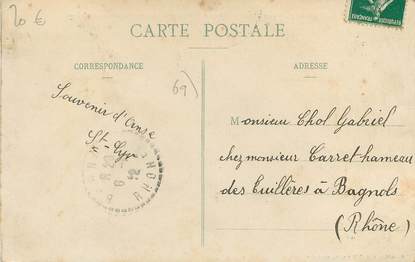 20 €
CARTE POSTALE
CORRESPONDANCE
ADRESSE
69)
Souvenir d'Anse
St-Cyr
RHONE
Monsieur Thol Gabriel
chez monsieur Carret hameau
des Tuillères à Bagnols
(Rhône)